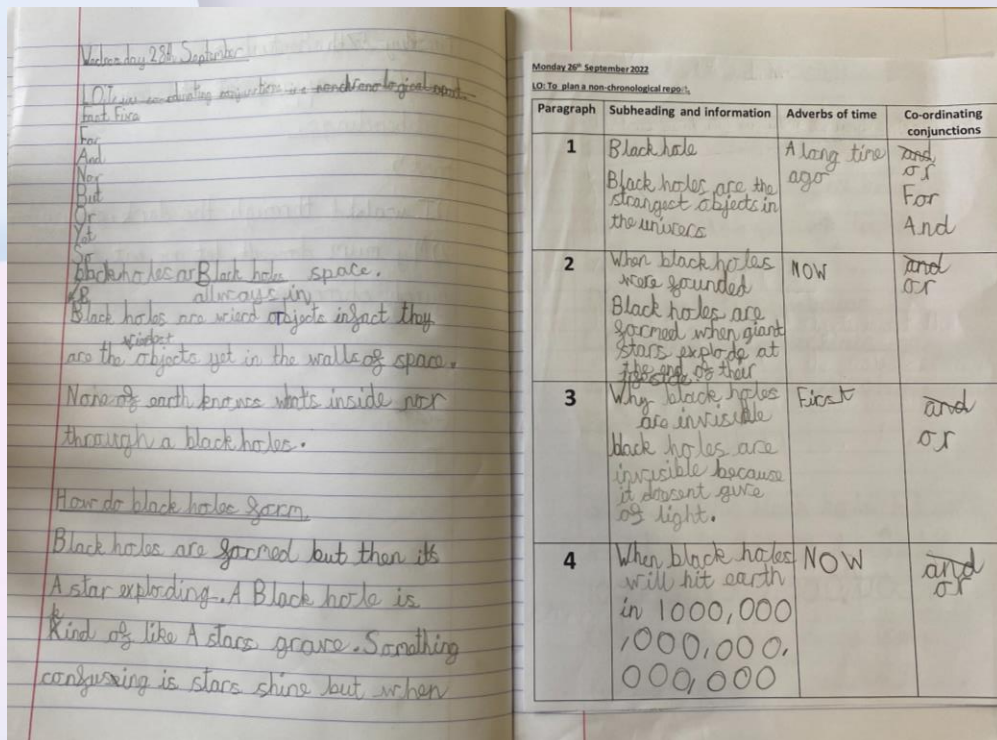 Wednesday 28th September
L.O. To use co-ordinating conjunctions in a non chronological report.
For
And
Nor
But
Or
Yet
So
black holes ar Black hole space.
allways in
Black holes are wierd objects infact they
are the objects yet in the walls of space.
None of earth knowes whats inside nor
through a black holes.
How do black holes form.
Black holes are formed but then it's
A star exploding. A Black hole is
kind of like A stars grave. Somthing
confussing is stars shine but when
Monday 26th September 2022
LO: To plan a non-chronological report.
Paragraph Subheading and information Adverbs of time Co-ordinating conjunctions
1
Black hole
Black holes are the
strangest objects in
the univers
A long time
ago
and
or
For
And
2
When black holes
were founded
Black holes are
formed when giant
stars explode at
the end of their
NOW
and
or
3
Why black holes
are invisible
black holes are
invisible because
it doesent give
of light.
First
and
or
4
When black holes
will hit earth
in 1000,000
,000,000,
000,000
NOW
and
or